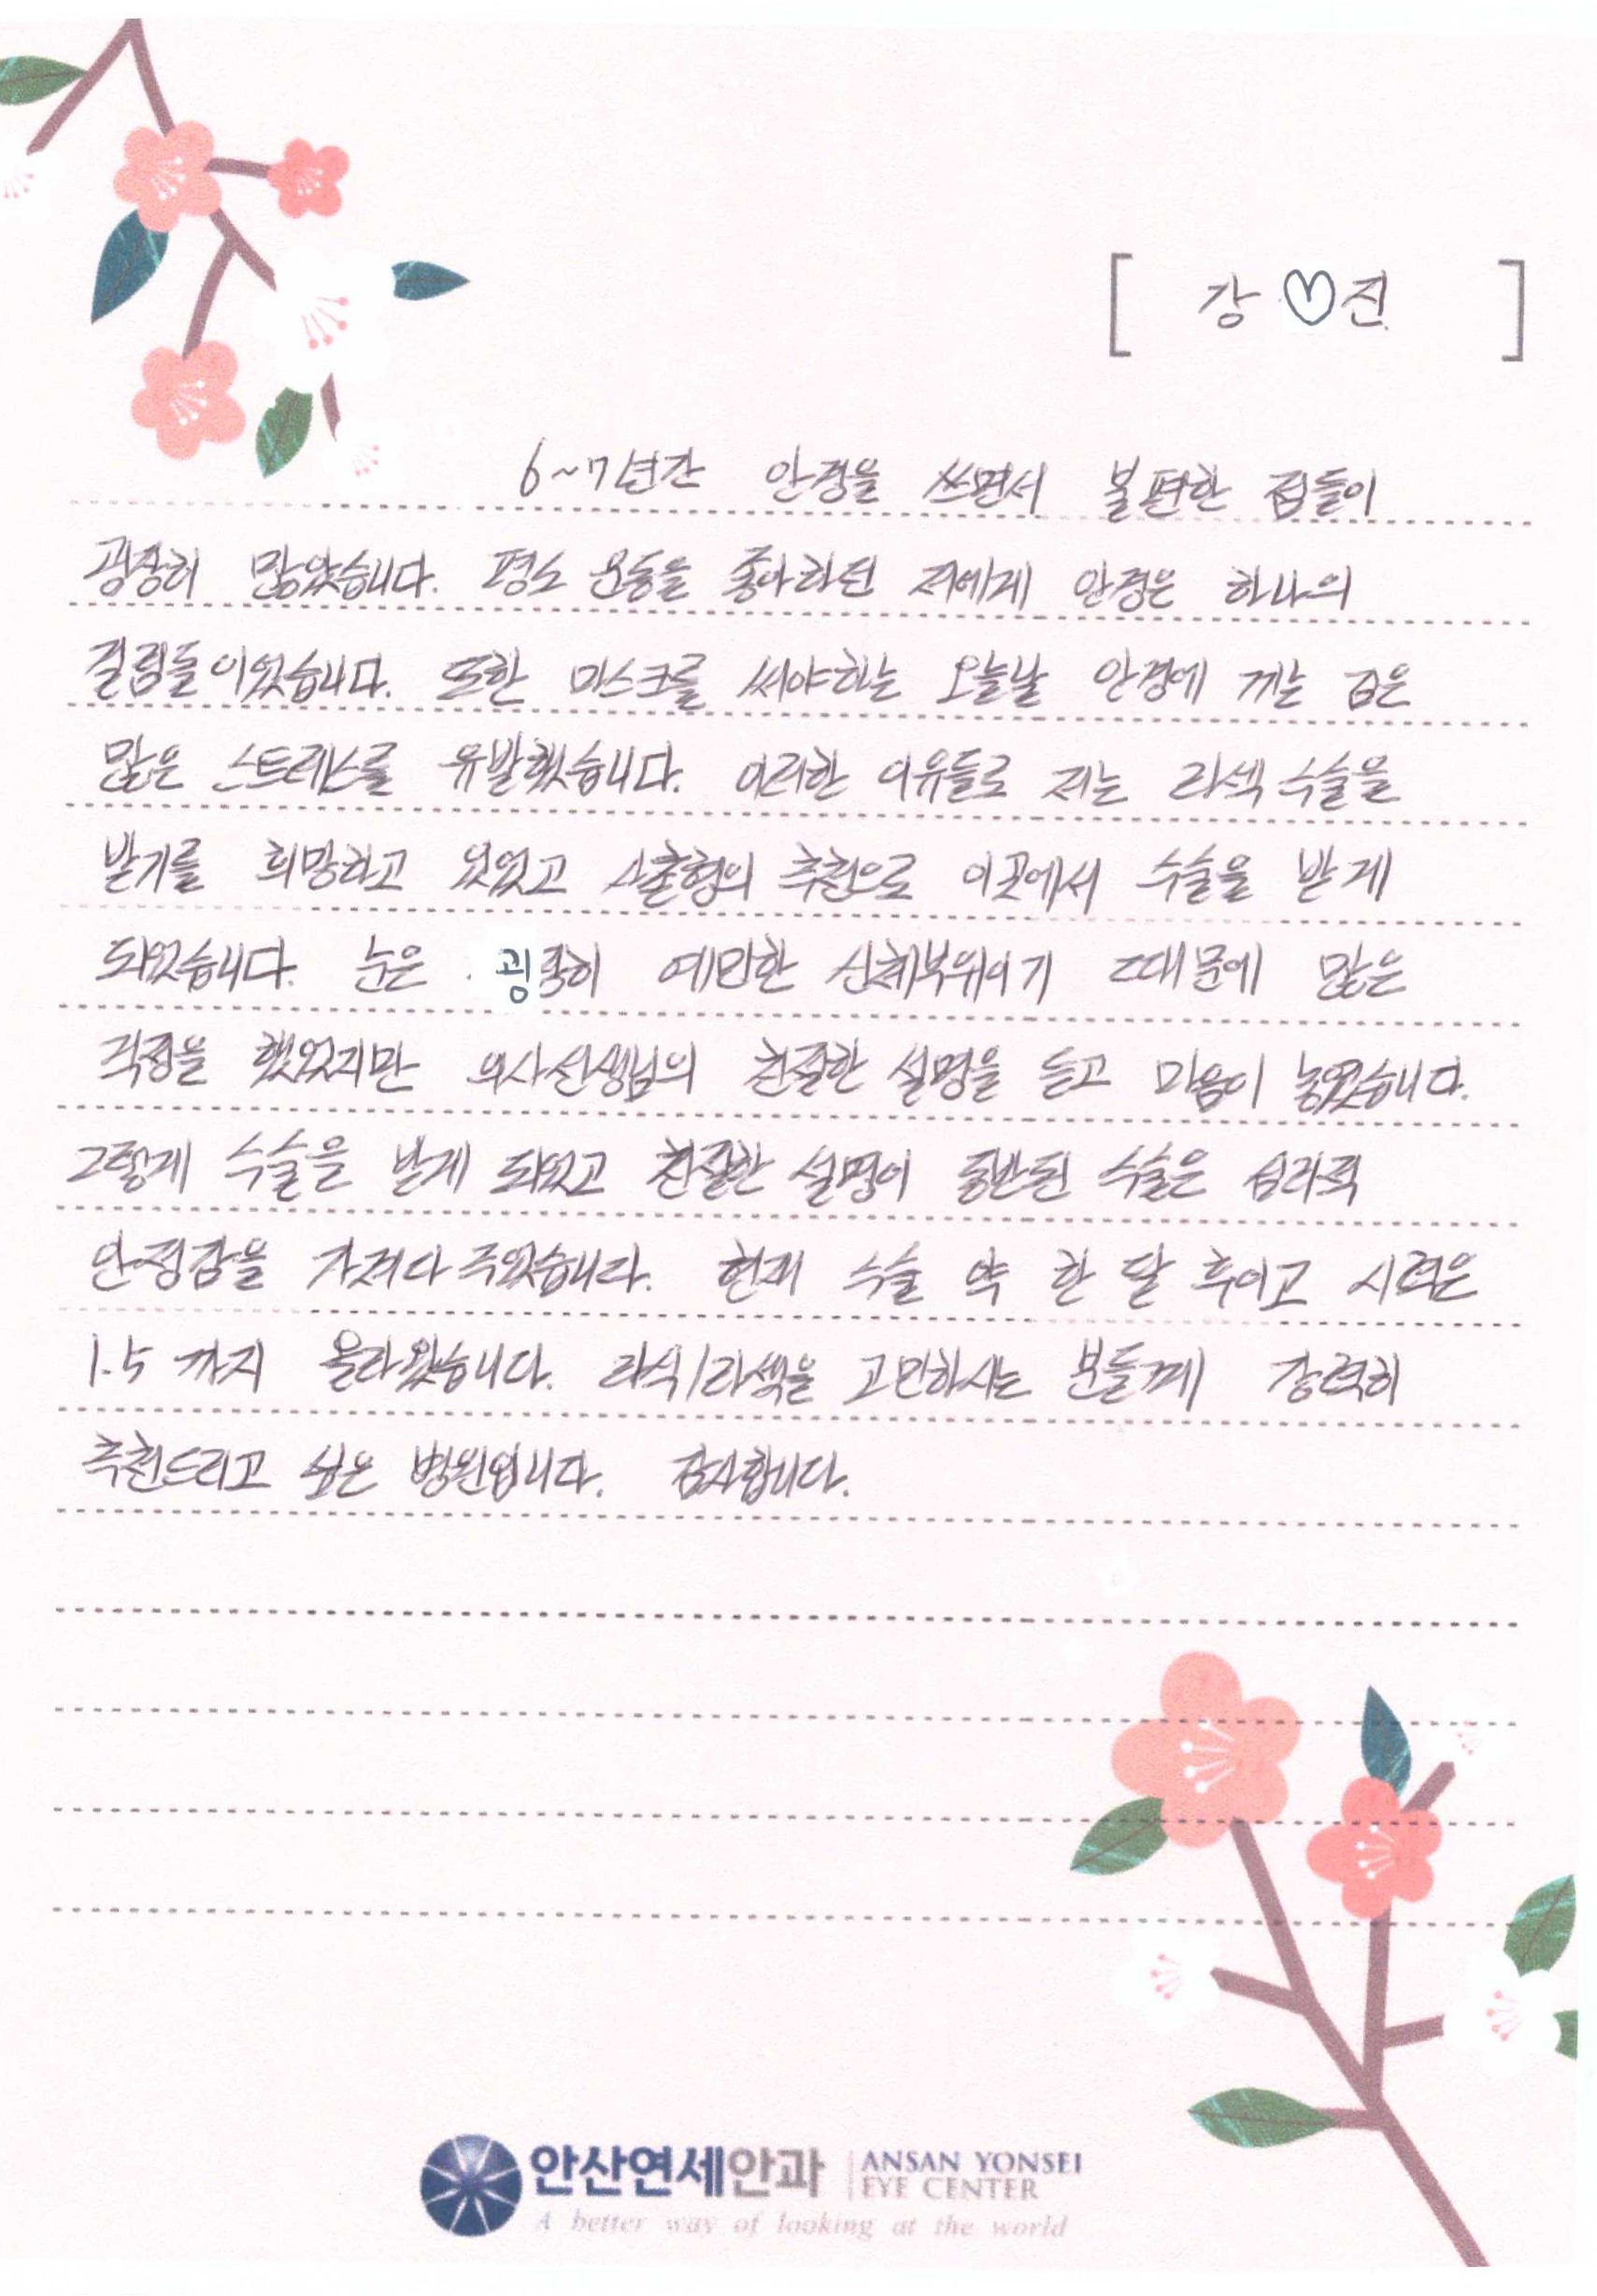 [ 강♡진 ]
6~7년간 안경을 쓰면서 불편한 점들이
굉장히 많았습니다. 평소 운동을 좋아하던 저에게 안경은 하나의
걸림돌이었습니다. 또한 마스크를 써야하는 오늘날 안경에 끼는 김은
많은 스트레스를 유발했습니다. 이러한 이유들로 저는 라섹 수술을
받기를 희망하고 있었고 사촌형의 추천으로 이곳에서 수술을 받게
되었습니다. 눈은 굉장히 예민한 신체부위이기 때문에 많은
걱정을 했었지만 의사선생님의 친절한 설명을 듣고 마음이 놓였습니다.
그렇게 수술을 받게 되었고 친절한 설명이 동반된 수술은 심리적
안정감을 가져다 주었습니다. 현재 수술 약 한 달 후이고 시력은
1.5 까지 올라왔습니다. 라식/라섹을 고민하시는 분들께 강력히
추천드리고 싶은 병원입니다. 감사합니다.
안산연세안과 ANSAN YONSEI
EYE CENTER
A better way of looking at the world